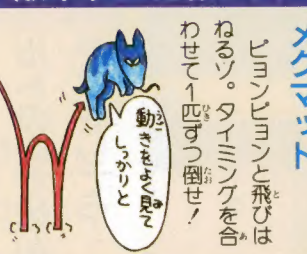 メタマット
ピョンピョンと飛びは
ねるゾ。タイミングを合
わせて1匹ずつ倒せ!
動きをよく見て
しっかりと